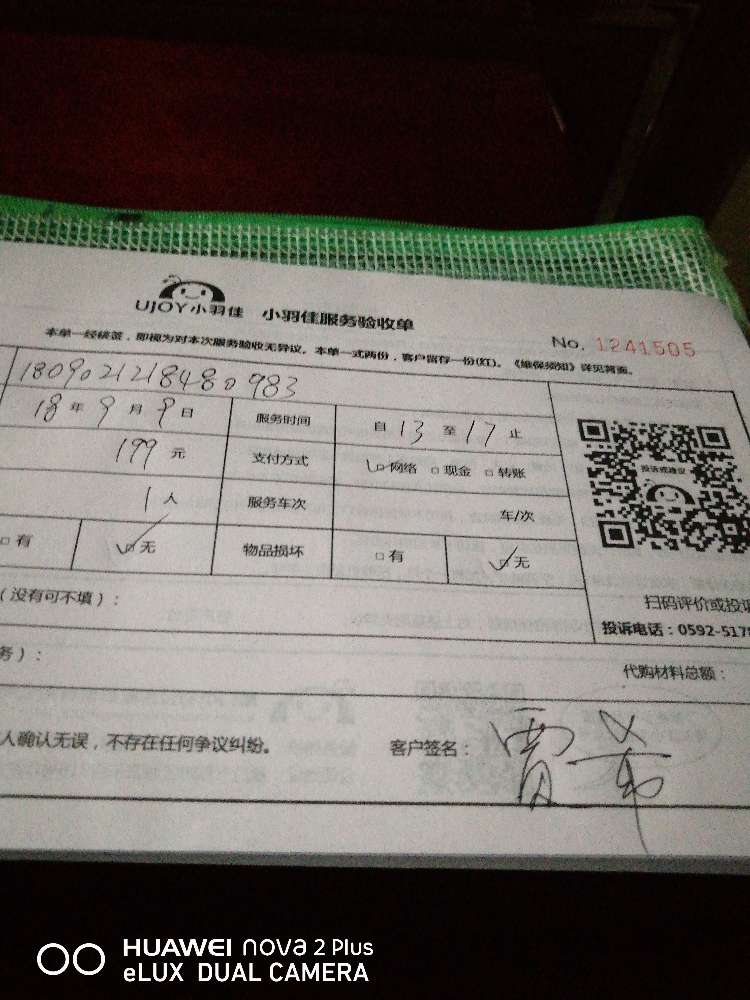 UJOY小羽佳 小羽佳服务验收单
No. 1241505
本单一经核签,即视为对本次服务验收无异议。本单一式两份,客户留存一份(红)。《维保须知》详见背面。
1809021218480983
18年9月9日 服务时间 自13至17止
199元 支付方式 网络 现金 转账
投诉或建议
1人 服务车次 车/次
有 无 物品损坏 有 无
(没有可不填):
扫码评价或投诉
投诉电话:0592-517
务): 代购材料总额:
人确认无误,不存在任何争议纠纷。 客户签名:贾
HUAWEI nova 2 Plus
eLUX DUAL CAMERA